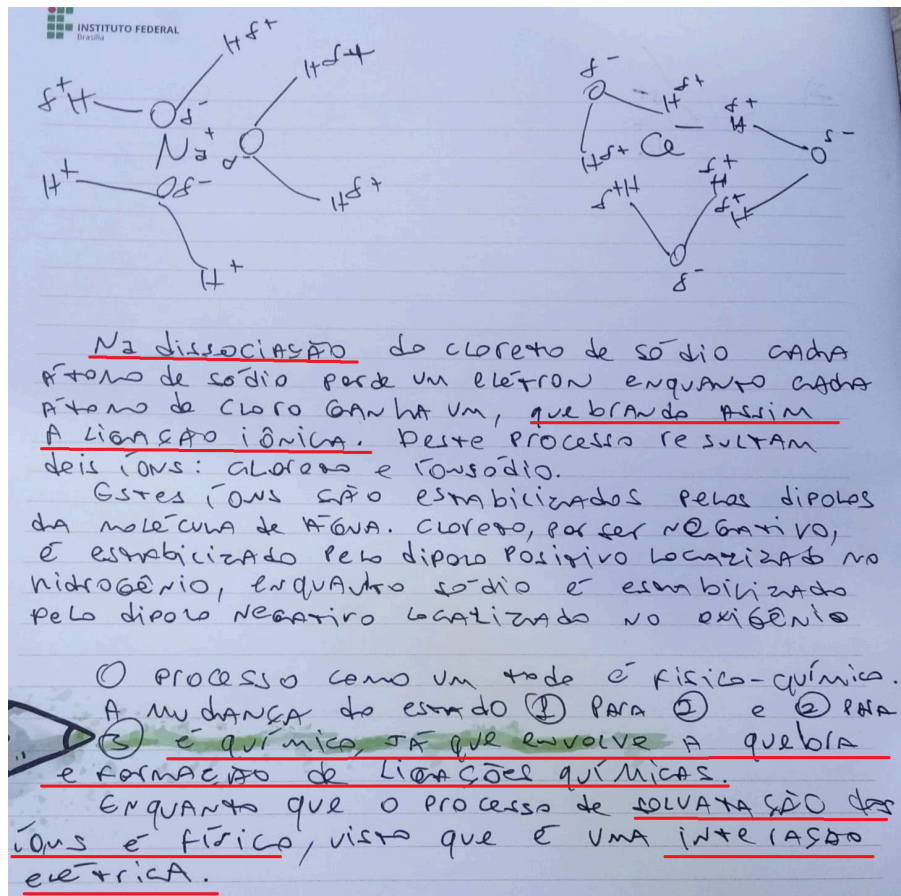 INSTITUTO FEDERAL
Brasília
H δ+
δ+ H
O δ-
H δ+
Na+
O
δ-
H+
O δ-
H δ+
H+
δ-
O
H δ+
δ+
H
H δ+
Cl -
O δ-
δ+ H
δ+
H
δ+
H
O
δ-
Na dissociação do cloreto de sódio cada
átomo de sódio perde um elétron enquanto cada
átomo de cloro ganha um, quebrando assim
a ligação iônica. Deste processo resultam
dois íons: cloreto e íon sódio.
Estes íons são estabilizados pelos dipolos
da molécula de água. Cloreto, por ser negativo,
é estabilizado pelo dipolo positivo localizado no
hidrogênio, enquanto sódio é estabilizado
pelo dipolo negativo localizado no oxigênio
O processo como um todo é físico-químico.
A mudança do estado 1 para 2 e 2 para
3 é químico, já que envolve a quebra
e formação de ligações químicas.
Enquanto que o processo de solvatação dos
íons é físico, visto que é uma interação
elétrica.